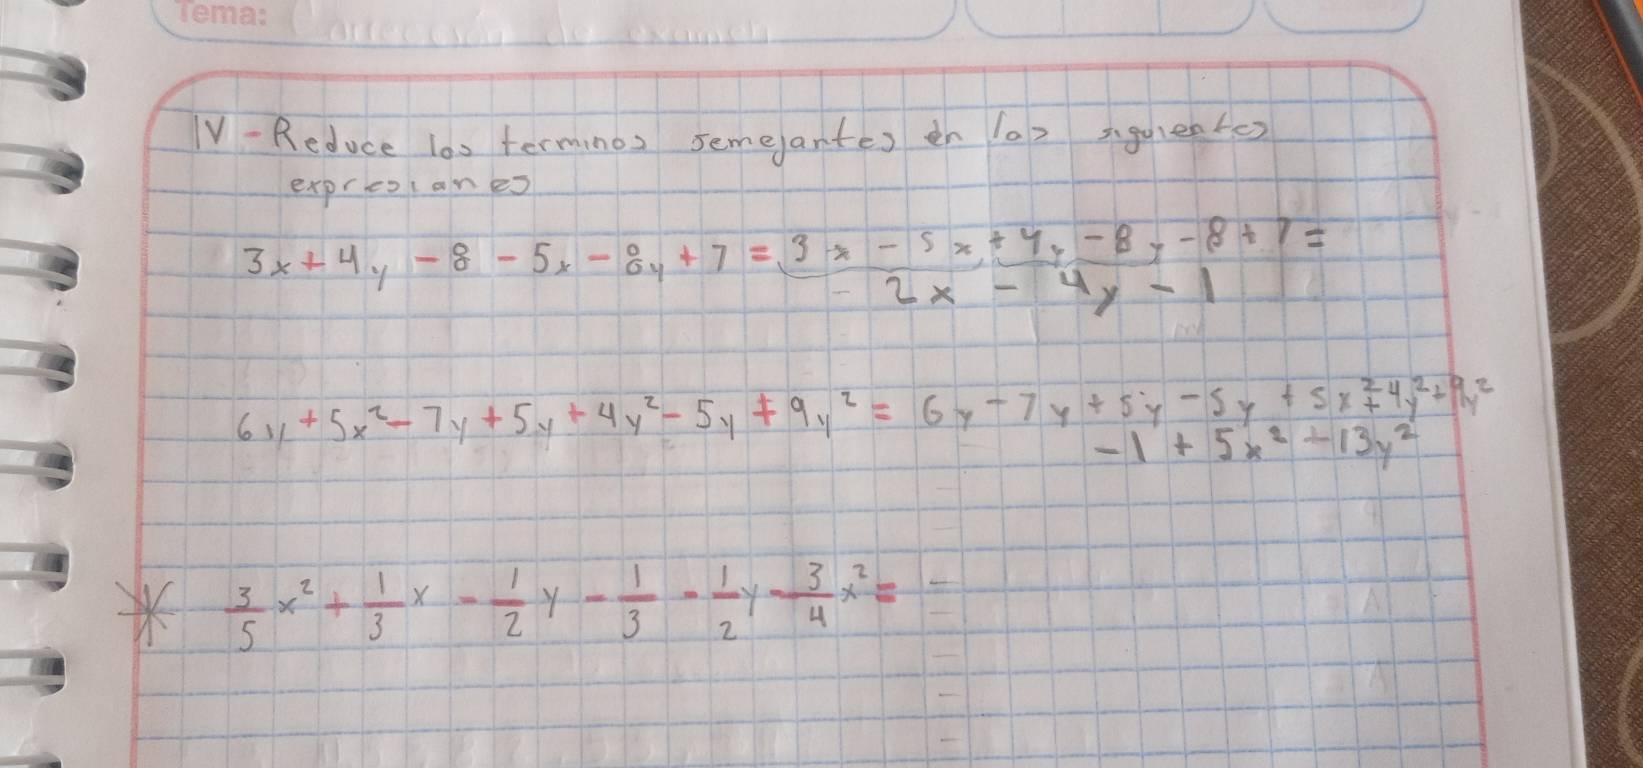 Tema: Corrección de examen
IV - Reduce los terminos semejantes en los siguientes
expresiones
3x + 4y - 8 - 5x - 8y + 7 = 3x - 5x + 4y - 8y - 8 + 7 =
- 2x - 4y - 1
6y + 5x² - 7y + 5y + 4y² - 5y + 9y² = 6y - 7y + 5y - 5y + 5x² + 4y² + 9y²
- 1 + 5x² + 13y²
3/5 x² + 1/3 x - 1/2 y - 1/3 - 1/2 y - 3/4 x² =